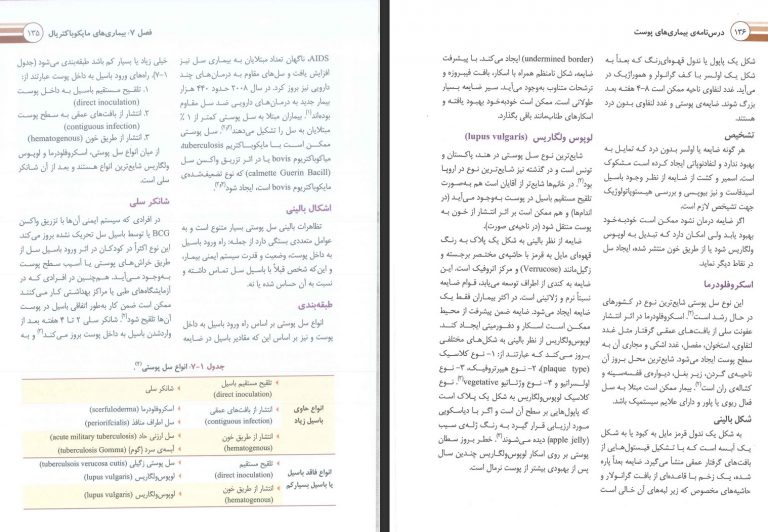 فصل ۷: بیماری‌های مایکوباکتریال ۱۳۵
AIDS، ناگهان تعداد مبتلایان به بیماری سل نیز
افزایش یافت و سل‌های مقاوم به درمان‌های چند
دارویی نیز بروز کرد. در سال ۲۰۰۸ حدود ۴۴۰ هزار
بیمار جدید به درمان‌های دارویی ضد سل مقاوم
بوده‌اند. بیماران مبتلا به سل پوستی کمتر از ۱ ٪
مبتلایان به سل را تشکیل می‌دهند. سل پوستی
ممکن است با مایکوباکتریم tuberculosis،
میاکوباکتریوم bovis یا در اثر تزریق واکسن سل
(calmette Guerin Bacill) که نوع تضعیف‌شده‌ی
مایکوباکتریوم bovis است، ایجاد شود
اشکال بالینی
تظاهرات بالینی سل پوستی بسیار متنوع است و به
عوامل متعددی بستگی دارد از جمله: راه ورود باسیل
به داخل پوست، وضعیت و قدرت سیستم ایمنی بیمار،
و این‌که شخص قبلاً با باسیل سل تماس داشته و
نسبت به آن حساس شده یا نه.
طبقه‌بندی
انواع سل پوستی بر اساس راه ورود باسیل به داخل
پوست و نیز بر اساس این که مقادیر باسیل در ضایعه
خیلی زیاد یا بسیار کم باشد طبقه‌بندی می‌شود (جدول
۱-۷). راه‌های ورود باسیل به داخل پوست عبارتند از:
۱. تلقیح مستقیم باسیل به داخل پوست
(direct inoculation)
۲. انتشار از بافت‌های عمقی به سطح پوست
(contiguous infection)
۳. انتشار از طریق خون (hematogenous)
از میان انواع سل پوستی، اسکروفلودرما و لوپوس
ولگاریس شایع‌ترین انواع هستند و بعد از آن شانکر
سلی است.
شانکر سلی
در افرادی که سیستم ایمنی آن‌ها با تزریق واکسن
BCG یا توسط باسیل سل تحریک نشده بروز می‌کند.
این نوع اکثراً در کودکان در اثر ورود باسیل سل از
طریق خراش‌های پوستی یا آسیب سطح پوست
به‌وجود می‌آید. هم‌چنین در افرادی که در
آزمایشگاه‌های طبی یا مراکز بهداشتی کار می‌کنند
ممکن است ضمن کار به‌طور اتفاقی باسیل در پوست
آن‌ها تلقیح شود. شانکر سلی ۲ تا ۴ هفته بعد از
واردشدن باسیل به داخل پوست بروز می‌کند و به
جدول ۱-۷: انواع سل پوستی.
انواع حاوی باسیل زیاد
تلقیح مستقیم باسیل (direct inoculation)
شانکر سلی
انتشار از بافت‌های عمقی (contiguous infection)
اسکروفلودرما (scerfuloderma)
سل اطراف منافذ (periorifcialis)
انتشار از طریق خون (hematogenous)
سل ارزنی حاد (acute military tuberculosis)
آبسه‌ی سرد (گوم) (tuberculosis Gomma)
انواع فاقد باسیل یا باسیل بسیار کم
تلقیح مستقیم (direct inoculation)
سل پوستی زگیلی (tuberculsois verucosa cutis)
لوپوس‌ولگاریس (lupus vulgaris)
انتشار از طریق خون (hematogenous)
لوپوس‌ولگاریس (lupus vulgaris)
۱۳۶ درس‌نامه‌ی بیماری‌های پوست
شکل یک پاپول یا ندول قهوه‌ای‌رنگ که بعداً به
شکل یک اولسر با کف گرانولر و هموراژیک در
می‌آید. غدد لنفاوی ناحیه ممکن است ۸-۴ هفته بعد
بزرگ شوند. ضایعه‌ی پوستی و غدد لنفاوی بدون درد
هستند.
تشخیص
هر گونه ضایعه یا اولسر بدون درد که تمایل به
بهبود ندارد و لنفادنوپاتی ایجاد کرده است مشکوک
است. اسمیر و کشت از ضایعه از نظر وجود باسیل
اسیدفاست و نیز بیوپسی و بررسی هیستوپاتولوژیک
جهت تشخیص لازم است.
اگر ضایعه درمان نشود ممکن است خودبه‌خود
بهبود یابد ولی امکان دارد که تبدیل به لوپوس
ولگاریس شود یا از طریق خون منتشر شده، ایجاد سل
در نقاط دیگر نماید.
اسکروفلودرما
این نوع سل پوستی شایع‌ترین نوع در کشورهای
در حال رشد است. اسکروفلودرما در اثر انتشار
عفونت سلی از بافت‌های عمقی گرفتار مثل غدد
لنفاوی، استخوان، مفصل، غدد اشکی و مجاری آن به
سطح پوست ایجاد می‌شود. شایع‌ترین محل بروز آن
ناحیه‌ی گردن، زیر بغل، دیواره‌ی قفسه‌سینه و
کشاله‌ی ران است. بیمار ممکن است مبتلا به سل
فعال ریوی یا پلور و دارای علایم سیستمیک باشد.
شکل بالینی
به شکل یک ندول قرمز مایل به کبود یا به شکل
یک آبسه است که با تشکیل فیستول‌هایی از
بافت‌های گرفتار عمقی منشأ می‌گیرد. ضایعه بعداً پاره
شده، یک زخم با قاعده‌ای از بافت گرانولار و
حاشیه‌های مخصوص که زیر لبه‌های آن خالی است
(undermined border) ایجاد می‌کند. با پیشرفت
ضایعه، شکل نامنظم همراه با اسکار، بافت فیبروزه و
ترشحات متناوب به‌وجود می‌آید. سیر ضایعه بسیار
طولانی است. ممکن است خودبه‌خود بهبود یافته و
اسکارهای طناب‌مانند باقی بگذارد.
لوپوس ولگاریس (lupus vulgaris)
شایع‌ترین نوع سل پوستی در هند، پاکستان و
تونس است و در گذشته نیز شایع‌ترین نوع در اروپا
بود. در خانم‌ها شایع‌تر از آقایان است هم به‌صورت
تلقیح مستقیم باسیل در پوست به‌وجود می‌آید (در
اندام‌ها) و هم ممکن است بر اثر انتشار از خون به
پوست منتقل شود (در ناحیه‌ی صورت).
ضایعه از نظر بالینی به شکل یک پلاک به رنگ
قهوه‌ای مایل به قرمز با حاشیه‌ی مختصر برجسته و
زگیل‌مانند (Verrucose) و مرکز آتروفیک است. این
ضایعه به کندی از اطراف توسعه می‌یابد، قوام ضایعه
نسبتاً نرم و ژلاتینی است. در اکثر بیماران فقط یک
ضایعه ایجاد می‌شود. ضایعه ضمن پیشرفت از محیط
ممکن است اسکار و دفورمیتی ایجاد کند.
لوپوس‌ولگاریس از نظر بالینی به شکل‌های مختلفی
بروز می‌کند که عبارتند از: ۱- نوع کلاسیک
(plaque type)، ۲- نوع هیپرتروفیک، ۳- نوع
اولسراتیو و ۴- نوع وژتانتیو vegetative. نوع
کلاسیک لوپوس‌ولگاریس به شکل یک پلاک است
که پاپول‌هایی بر سطح آن است و اگر با دیاسکوپی
مورد ارزیابی قرار گیرد به رنگ ژله‌ی سیب
(apple jelly) دیده می‌شوند. خطر بروز سطان
پوستی بر روی اسکار لوپوس‌ولگاریس چندین سال
پس از بهبودی بیشتر از پوست نرمال است.